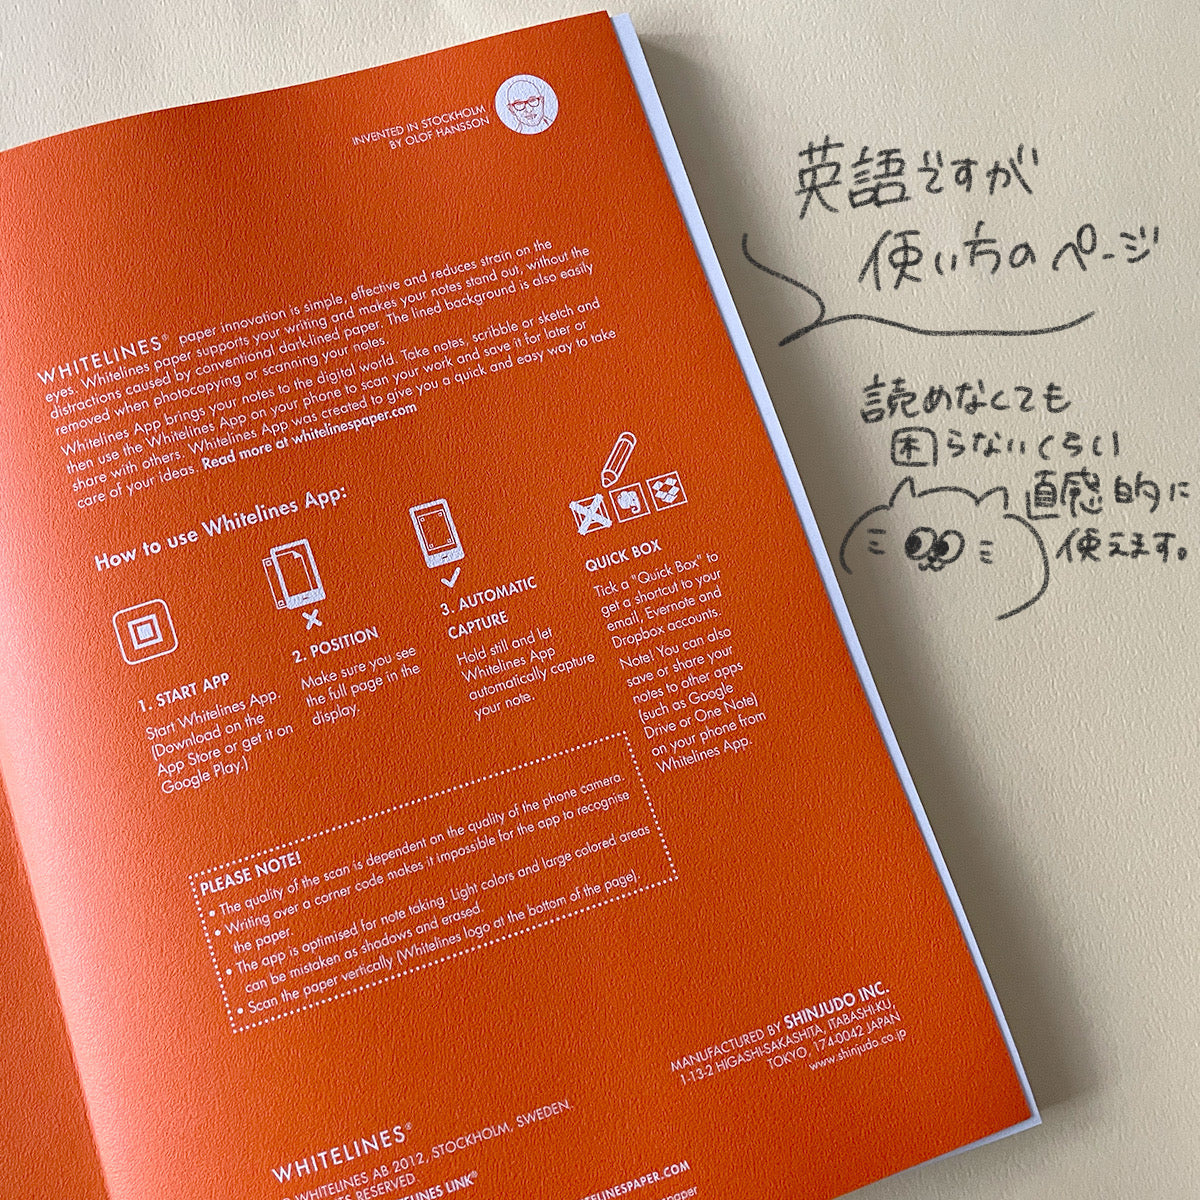 INVENTED IN STOCKHOLM
BY OLOF HANSSON
WHITELINES® paper innovation is simple, effective and reduces strain on the
eyes. Whitelines paper supports your writing and makes your notes stand out, without the
distractions caused by conventional dark-lined paper. The lined background is also easily
removed when photocopying or scanning your notes.
Whitelines App brings your notes to the digital world. Take notes, scribble or sketch and
then use the Whitelines App on your phone to scan your work and save it for later or
share with others. Whitelines App was created to give you a quick and easy way to take
care of your ideas. Read more at whitelinespaper.com
How to use Whitelines App:
1. START APP
Start Whitelines App.
(Download on the
App Store or get it on
Google Play.)
2. POSITION
Make sure you see
the full page in the
display.
3. AUTOMATIC
CAPTURE
Hold still and let
Whitelines App
automatically capture
your note.
QUICK BOX
Tick a "Quick Box" to
get a shortcut to your
email, Evernote and
Dropbox accounts.
Note! You can also
save or share your
notes to other apps
(such as Google
Drive or One Note)
on your phone from
Whitelines App.
PLEASE NOTE!
• The quality of the scan is dependent on the quality of the phone camera.
• Writing over a corner code makes it impossible for the app to recognise
the paper.
• The app is optimised for note taking. Light colors and large colored areas
can be mistaken as shadows and erased.
• Scan the paper vertically (Whitelines logo at the bottom of the page).
MANUFACTURED BY SHINJUDO INC.
1-13-2 HIGASHI-SAKASHITA, ITABASHI-KU,
TOKYO, 174-0042 JAPAN
www.shinjudo.co.jp
WHITELINES®
WHITELINES AB 2012, STOCKHOLM, SWEDEN.
RESERVED.
LINES LINK®
ELINESPAPER.COM
paper
英語ですが
使い方のページ
読めなくても
困らないくらい
直感的に
使えます。